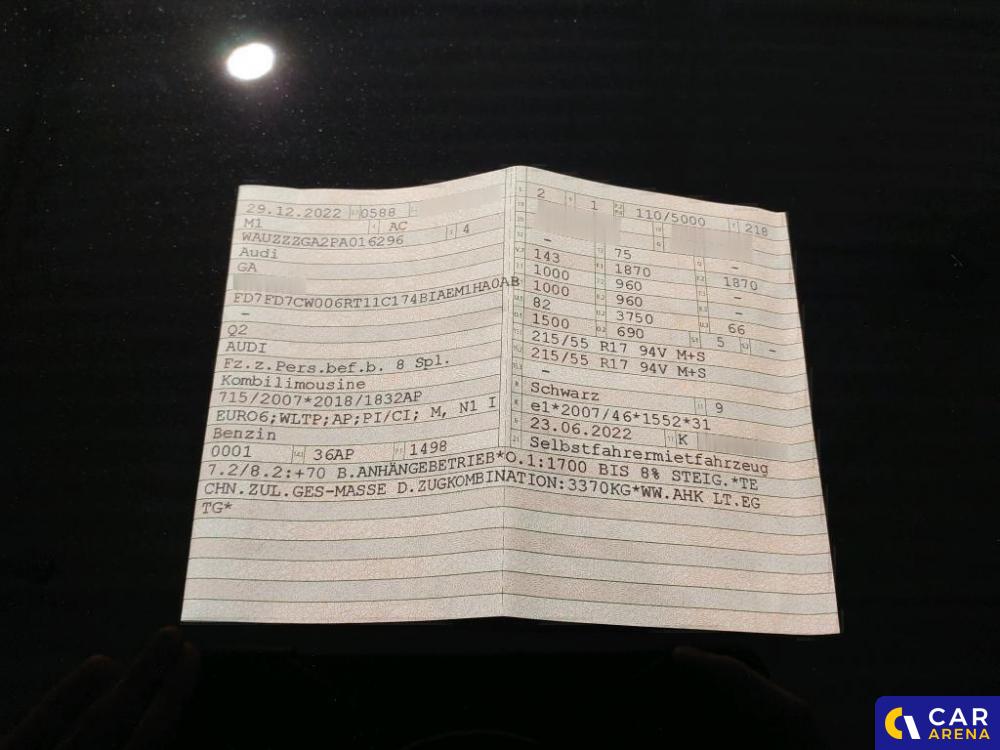 29.12.2022 0588
M1 AC
WAUZZZGA2PA016296 4
Audi
GA
FD7FD7CW006RT11C174BIAEM1HA0AB
–
Q2
AUDI
Fz.z.Pers.bef.b. 8 Spl.
Kombilimousine
715/2007*2018/1832AP
EURO6;WLTP;AP;PI/CI; M, N1 I
Benzin
0001 36AP 1498
2 1 110/5000 218
–
143 75 –
1000 1870 1870
1000 960 –
82 960
1500 3750 66
690 5 –
215/55 R17 94V M+S
215/55 R17 94V M+S
–
Schwarz 9
e1*2007/46*1552*31
23.06.2022 K
Selbstfahrermietfahrzeug
7.2/8.2:+70 B.ANHÄNGEBETRIEB*O.1:1700 BIS 8% STEIG.*TE
CHN.ZUL.GES-MASSE D.ZUGKOMBINATION:3370KG*WW.AHK LT.EG
TG*
CAR
ARENA